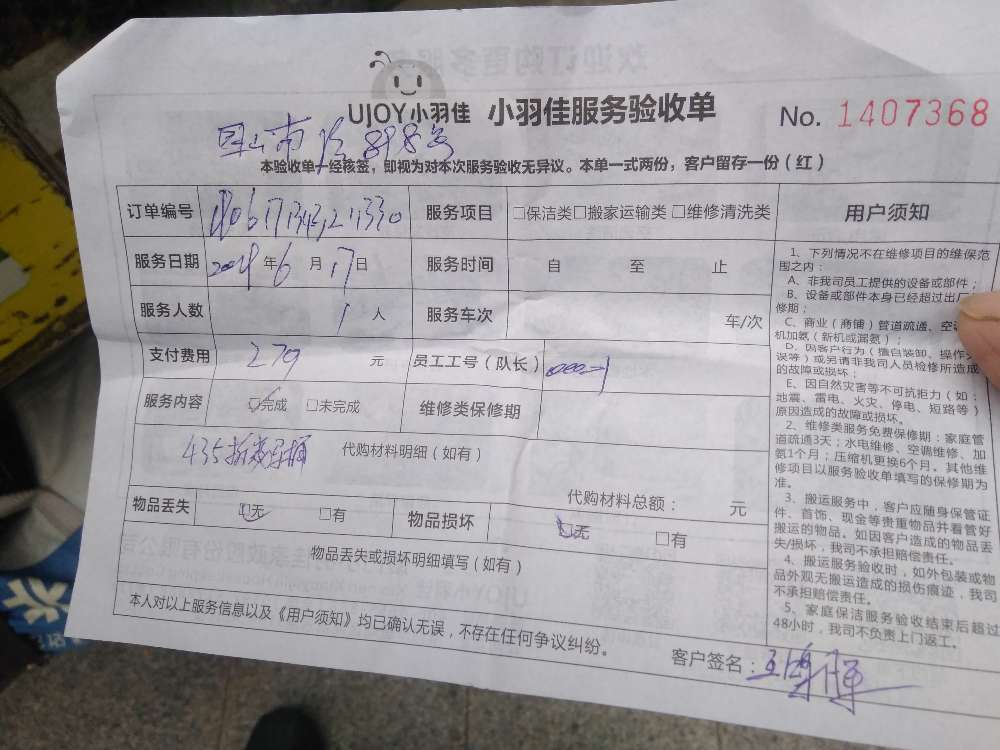 UJOY小羽佳 小羽佳服务验收单 No. 1407368
898号
本验收单一经核签，即视为对本次服务验收无异议。本单一式两份，客户留存一份（红）
订单编号 服务项目 □保洁类□搬家运输类□维修清洗类
服务日期 年6月17日 服务时间 自 至 止
服务人数 1人 服务车次 车/次
支付费用 279 元 员工工号（队长）
服务内容 □完成 □未完成 维修类保修期
代购材料明细（如有）
代购材料总额： 元
物品丢失 □无 □有 物品损坏 □无 □有
物品丢失或损坏明细填写（如有）
本人对以上服务信息以及《用户须知》均已确认无误，不存在任何争议纠纷。
客户签名：
用户须知
1、下列情况不在维修项目的维保范
围之内：
A、非我司员工提供的设备或部件；
B、设备或部件本身已经超过出厂
修期；
C、商业（商铺）管道疏通、空
机加氨（新机或漏氨）；
D、因客户行为（擅自装卸、操作
误等）或另请非我司人员检修所造成
的故障或损坏；
E、因自然灾害等不可抗拒力（如：
地震、雷电、火灾、停电、短路等）
原因造成的故障或损坏。
2、维修类服务免费保修期：家庭管
道疏通3天；水电维修、空调维修、加
氨1个月；压缩机更换6个月。其他维
修项目以服务验收单填写的保修期为
准。
3、搬运服务中，客户应随身保管证
件、首饰、现金等贵重物品并看管好
搬运的物品。如因客户造成的物品丢
失/损坏，我司不承担赔偿责任。
4、搬运服务验收时，如外包装或物
品外观无搬运造成的损伤痕迹，我司
不承担赔偿责任。
5、家庭保洁服务验收结束后超过
48小时，我司不负责上门返工。